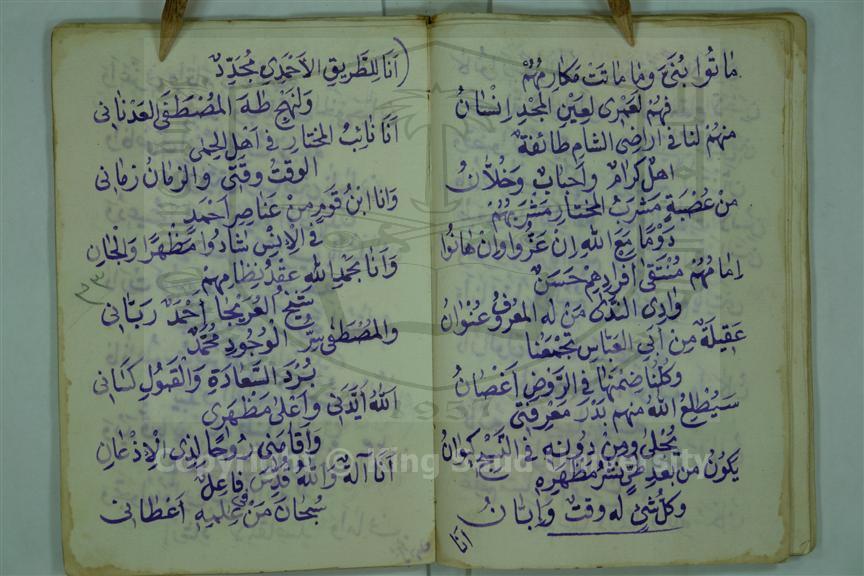 ماتُوا بُنَيَّ وما ماتت مكارمهُمْ
فهُم لعَمرى لعين المجدِ انسانُ
منهُمْ لنا في اراضى الشام طائفةٌ
اهلٌ كرامٌ واحبابٌ وخُلاّنُ
منْ عُصْبَةٍ مشرَبُ المختارِ مَشرَبهُمْ
دَوْمًا مع اللهِ انْ عَزُّوا وانْ هانُوا
امامُهُمْ مُنتقى افرادِهِم حَسَنٌ
وادى النّدى مَن له المعروفُ عُنْوانُ
عَقِيلَةٌ مِن أبى العبّاسِ تجمَعُنا
وكلُّنا ضِمنَها في الرَّوضِ اغصانُ
سيُطلِعُ اللهُ منهم بَدْرَ مَعْرِفتى
يُجلى ومِنْ دُونِهِ في التّيهِ كيوانُ
يكونُ من بعد طىٍّ نشرُ مظهَرِهِ
وكلُّ شئٍ له وقتٌ وابّانُ
انا
انا للطَّريقِ الأحمدى مُجَدِّدٌ
ولنهجِ طهَ المُصْطَفى العَدْنانى
أنا نائبُ المختارِ في أهلِ الحِمى
الوقتُ وقتى والزمانُ زمانى
وانا ابنُ قومٍ مِنْ عناصِرِ احْمَدٍ
في الإنسِ شادُوا مَظْهرًا والجانِ
وأنا بحمدِ اللهِ عقدُ نظامِهِمْ
شيخُ العُرَيجا أحمدٌ ربّانى
والمصْطفى سرُّ الوُجودِ محمّدٌ
بُرْدَ السَّعادَةِ والقَبُولِ كسانى
اللهُ ايَّدَنى واعلى مَظْهَرى
وأقامنى رُوحًا لِذى الإذْعانِ
أنا آلةٌ واللهُ قُدِّسَ فاعِلٌ
سُبحانَ مَنْ مِحْلِمِهِ أعْطانى